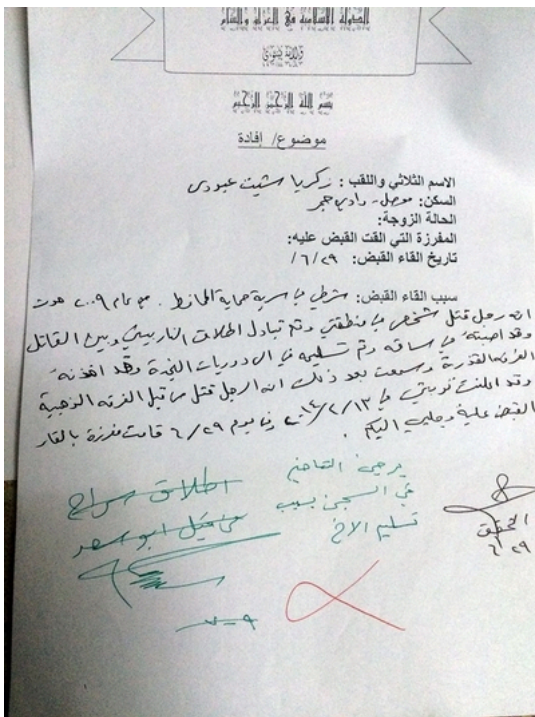 الدولة الاسلامية في العراق والشام
ولاية نينوى
بسم الله الرحمن الرحيم
موضوع/ إفادة
الاسم الثلاثي واللقب : زكريا شيت عبودي
السكن: موصل - وادي حجر
الحالة الزوجة:
المفرزة التي القت القبض عليه:
تاريخ القاء القبض: ٦/٢٩/
سبب القاء القبض: شرطي في سرية حماية
انه رجل قتل شخص في منطقتي وتم تبادل اطلاق النار بيني وبين القاتل
وقد اصبته في ساقه وتم تسليمه الى دوريات النجدة وقد اخذته
الفرقه القذرة وسمعت بعد ذلك انه الرجل قتل من قبل الفرقه الذهبية
وقد في ٢٠١٤/٢/١٣ في يوم ٦/٢٩ قامت مفرزة بالقاء
القبض عليه وجلبي اليكم .
يرجى
في السجن بسبب
تسليم الاخ
اطلاق سراح
من قبل ابو
المحقق
٦/٢٩